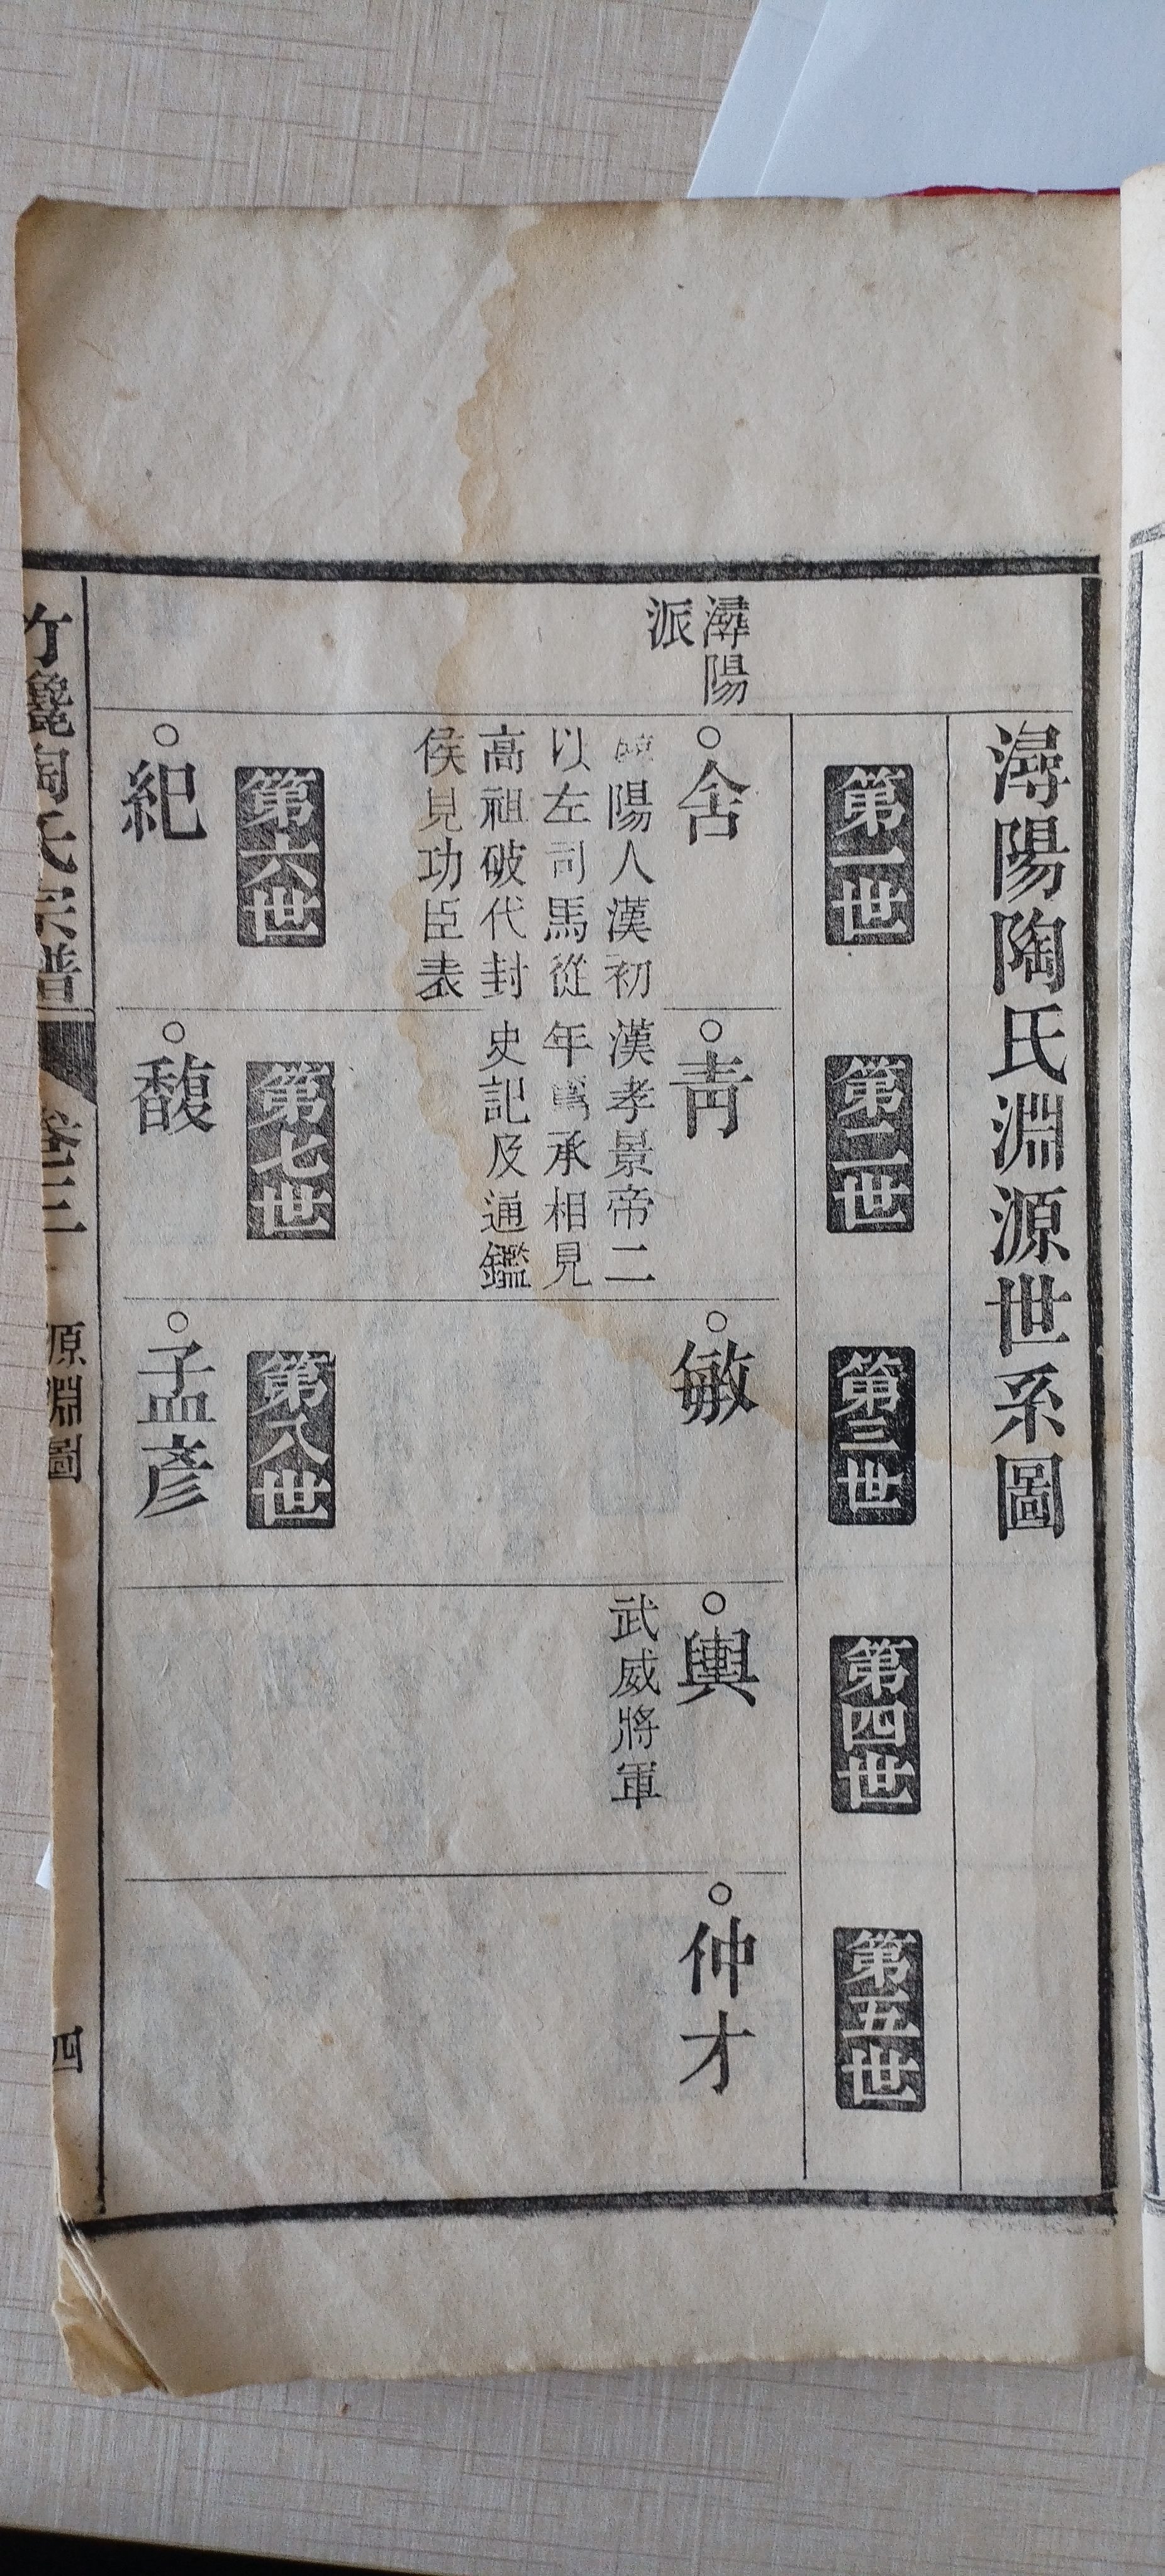 潯陽陶氏淵源世系圖
第一世
第二世
第三世
第四世
第五世
潯陽
派
舍
陽人漢初
以左司馬從
高祖破代封
侯見功臣表
青
漢孝景帝二
年為丞相見
史記及通鑑
敏
輿
武威將軍
仲才
第六世
第七世
第八世
紀
馥
孟彥
竹 陶氏宗譜
卷三
原淵圖
四